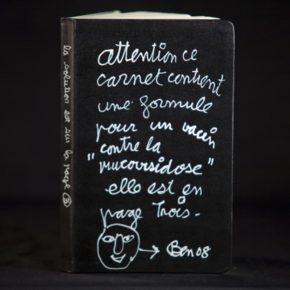 attention ce
carnet contient
une formule
pour un vaccin
"contre la
mucovisidose"
elle est en
page Trois.
Ben 08
la solution est sur la page 3